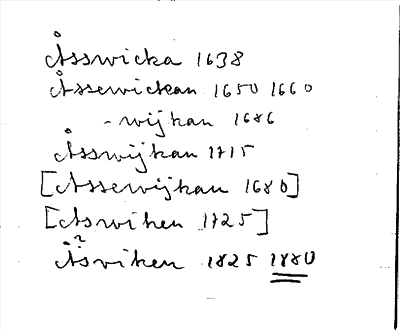 Åsswicka 1638
Åssewickan 1650 1660
- wijkan 1686
Åsswijkan 1715
[Assewijkan 1680]
[Aswiken 1725]
?
Åsviken 1825 1880